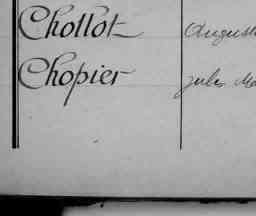 Chollot August
Chopier Jules Ma